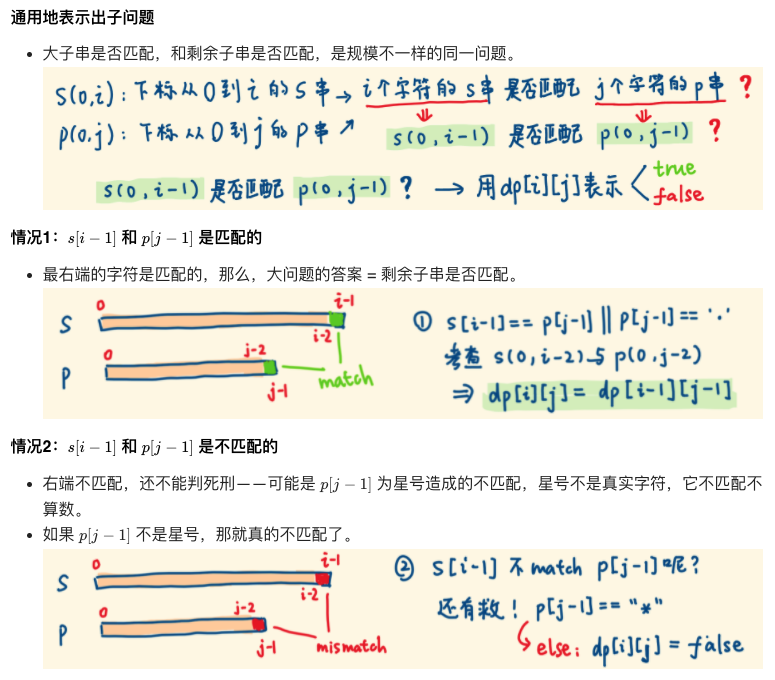 通用地表示出子问题
大子串是否匹配，和剩余子串是否匹配，是规模不一样的同一问题。
S(0,i)：下标从0到i的S串→ i个字符的s串 是否匹配 j个字符的p串？
P(0.j)：下标从0到j的P串↗ s(0,i-1) 是否匹配 p(0,j-1) ？
s(0,i-1) 是否匹配 p(0,j-1)？ → 用dp[i][j]表示 < true
false
情况1：s[i-1] 和 p[j-1] 是匹配的
最右端的字符是匹配的，那么，大问题的答案 = 剩余子串是否匹配。
0 i-1
S i-2
0 j-2
P j-1 match
① s[i-1]== p[j-1] || p[j-1]== '.'
考查 s(0,i-2)与 p(0.j-2)
⇒ dp[i][j]= dp[i-1][j-1]
情况2：s[i-1] 和 p[j-1] 是不匹配的
右端不匹配，还不能判死刑——可能是 p[j-1] 为星号造成的不匹配，星号不是真实字符，它不匹配不
算数。
如果 p[j-1] 不是星号，那就真的不匹配了。
0 i-1
S i-2
0 j-2
P j-1 mismatch
② s[i-1] 不match p[j-1]呢？
还有救！ p[j-1]== "*"
else: dp[i][j]= false